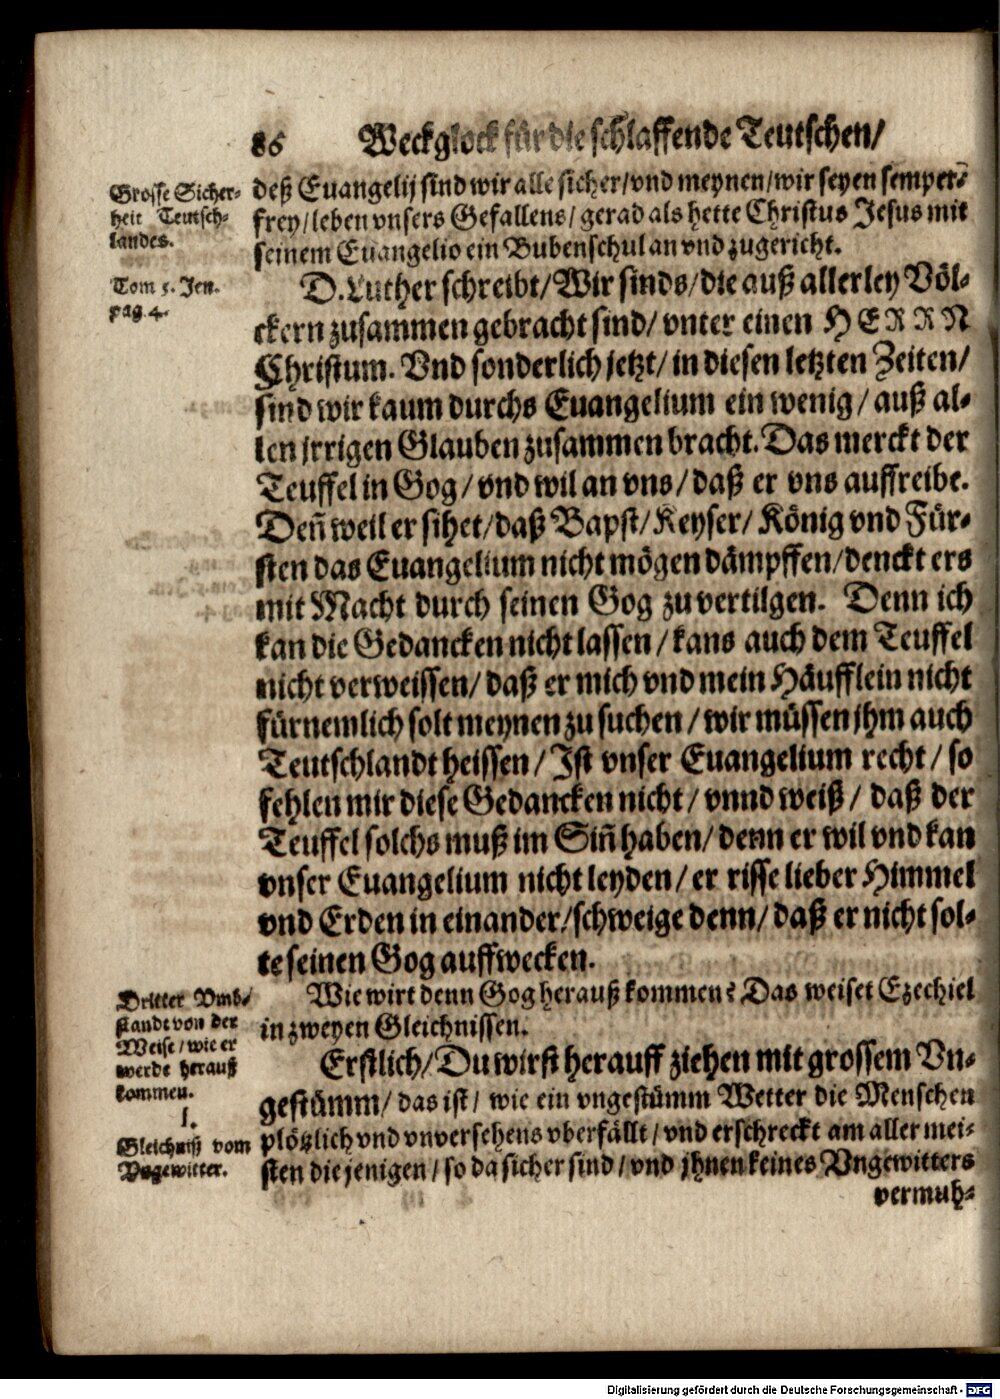 86 Weckglock für die schlaffende Teutschen/
Grosse Sicher-
heit Teutsch-
landes.
deß Euangelij sind wir alle sicher/vnd meynen/wir seyen semper-
frey/leben vnsers Gefallens/gerad als hette Christus Jesus mit
seinem Euangelio ein Bubenschul an vnd zugericht.
Tom 5. Jen.
pag 4.
D. Luther schreibt/Wir sinds/die auß allerley Völ-
ckern zusammen gebracht sind/vnter einen HERRN
Christum. Vnd sonderlich jetzt/in diesen letzten Zeiten/
sind wir kaum durchs Euangelium ein wenig/auß al-
len jrrigen Glauben zusammen bracht. Das merckt der
Teuffel in Gog/vnd wil an vns/daß er vns auffreibe.
Deñ weil er sihet/daß Bapst/Keyser/König vnd Für-
sten das Euangelium nicht mögen dämpffen/denckt ers
mit Macht durch seinen Gog zu vertilgen. Denn ich
kan die Gedancken nicht lassen/kans auch dem Teuffel
nicht verweissen/daß er mich vnd mein Häufflein nicht
fürnemlich solt meynen zu suchen/wir müssen jhm auch
Teutschlandt heissen/Ist vnser Euangelium recht/so
fehlen mir diese Gedancken nicht/vnnd weiß/daß der
Teuffel solchs muß im Siñ haben/denn er wil vnd kan
vnser Euangelium nicht leyden/er risse lieber Himmel
vnd Erden in einander/schweige denn/daß er nicht sol-
te seinen Gog auffwecken.
Dritter Vmb-
standt von der
Weise/wie er
werde herauß
kommen.
Wie wirt denn Gog herauß kommen? Das weiset Ezechiel
in zweyen Gleichnissen.
1.
Gleichniß vom
Vngewitter.
Erstlich/Du wirst herauff ziehen mit grossem Vn-
gestümm/das ist/wie ein vngestümm Wetter die Menschen
plötzlich vnd vnversehens vberfällt/vnd erschreckt am aller mei-
sten diejenigen/so da sicher sind/vnd jhnen keines Vngewitters
vermuh-
Digitalisierung gefördert durch die Deutsche Forschungsgemeinschaft - DFG